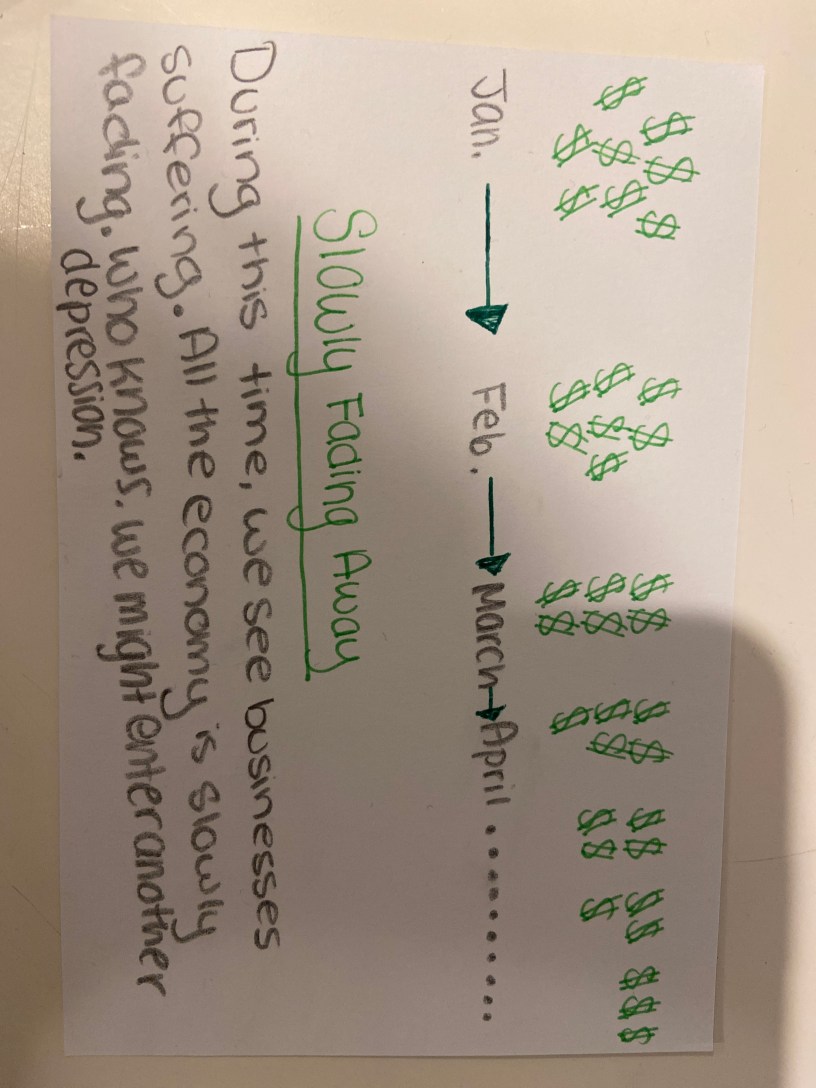 Jan. → Feb. → March → April .........
Slowly Fading Away
During this time, we see businesses
suffering. All the economy is slowly
fading. Who knows. we might enter another
depression.